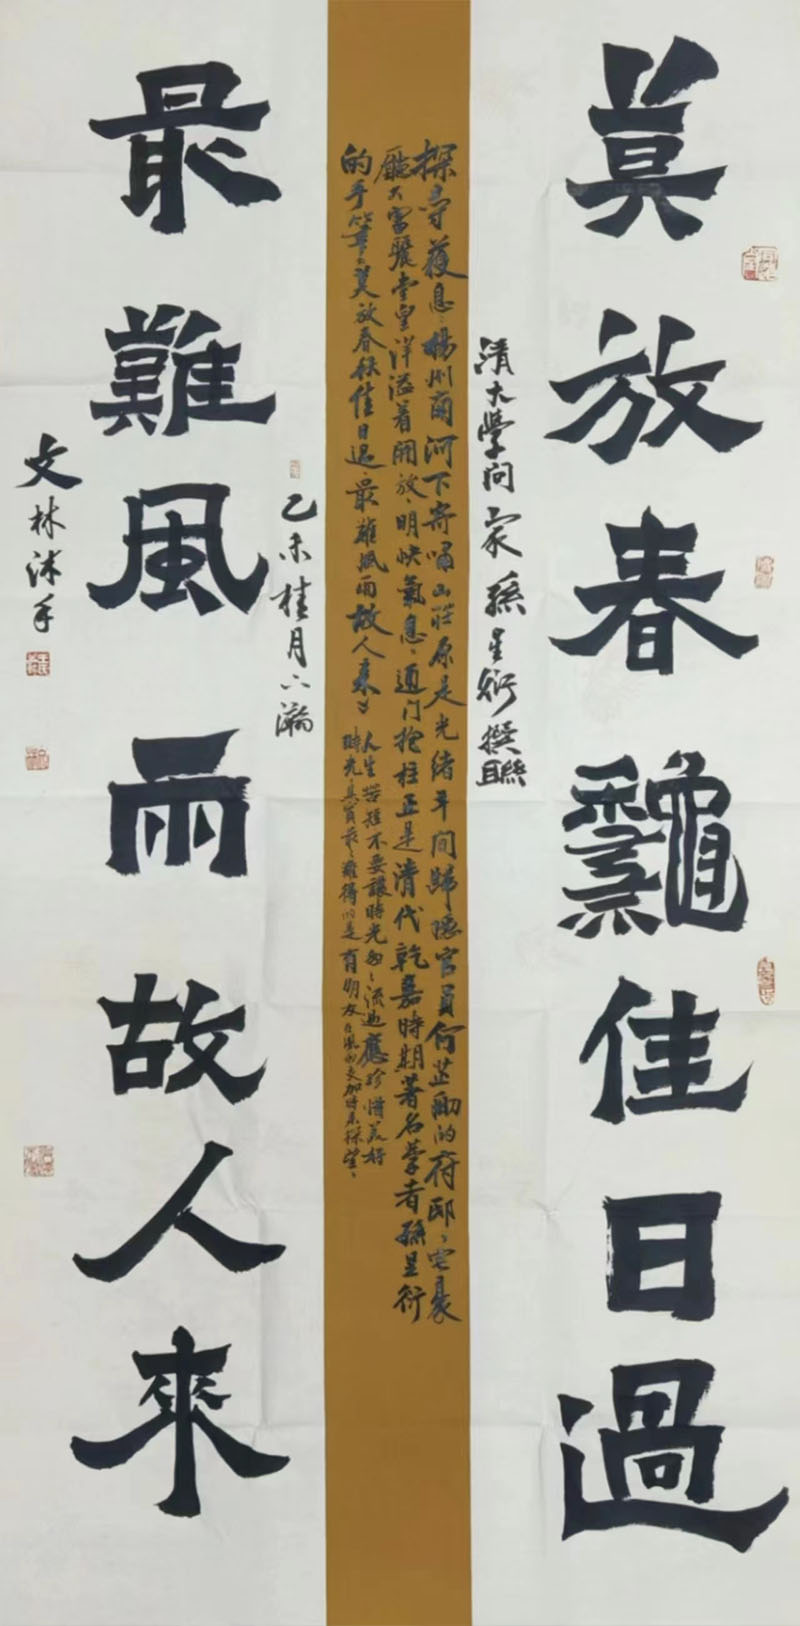 莫放春龝佳日過
清大學问家孫星衍撰聯
探寻蕿息、楊州南河下寄啸山莊原是光绪年间歸隱官員何芷舠的府邸、宅裏
廳大富麗堂皇洋溢着開放、明快氣息、通门抱柱正是清代乾嘉時期著名学者孫星衍
的手筆《莫放春秋佳日過、最難風雨故人来》
人生苦短不要讓時光匆匆流過應珍惜美好
時光真買最難得的是有朋友在風雨交加時来探望、
最難風雨故人來
乙未桂月六瀚
文林沐手